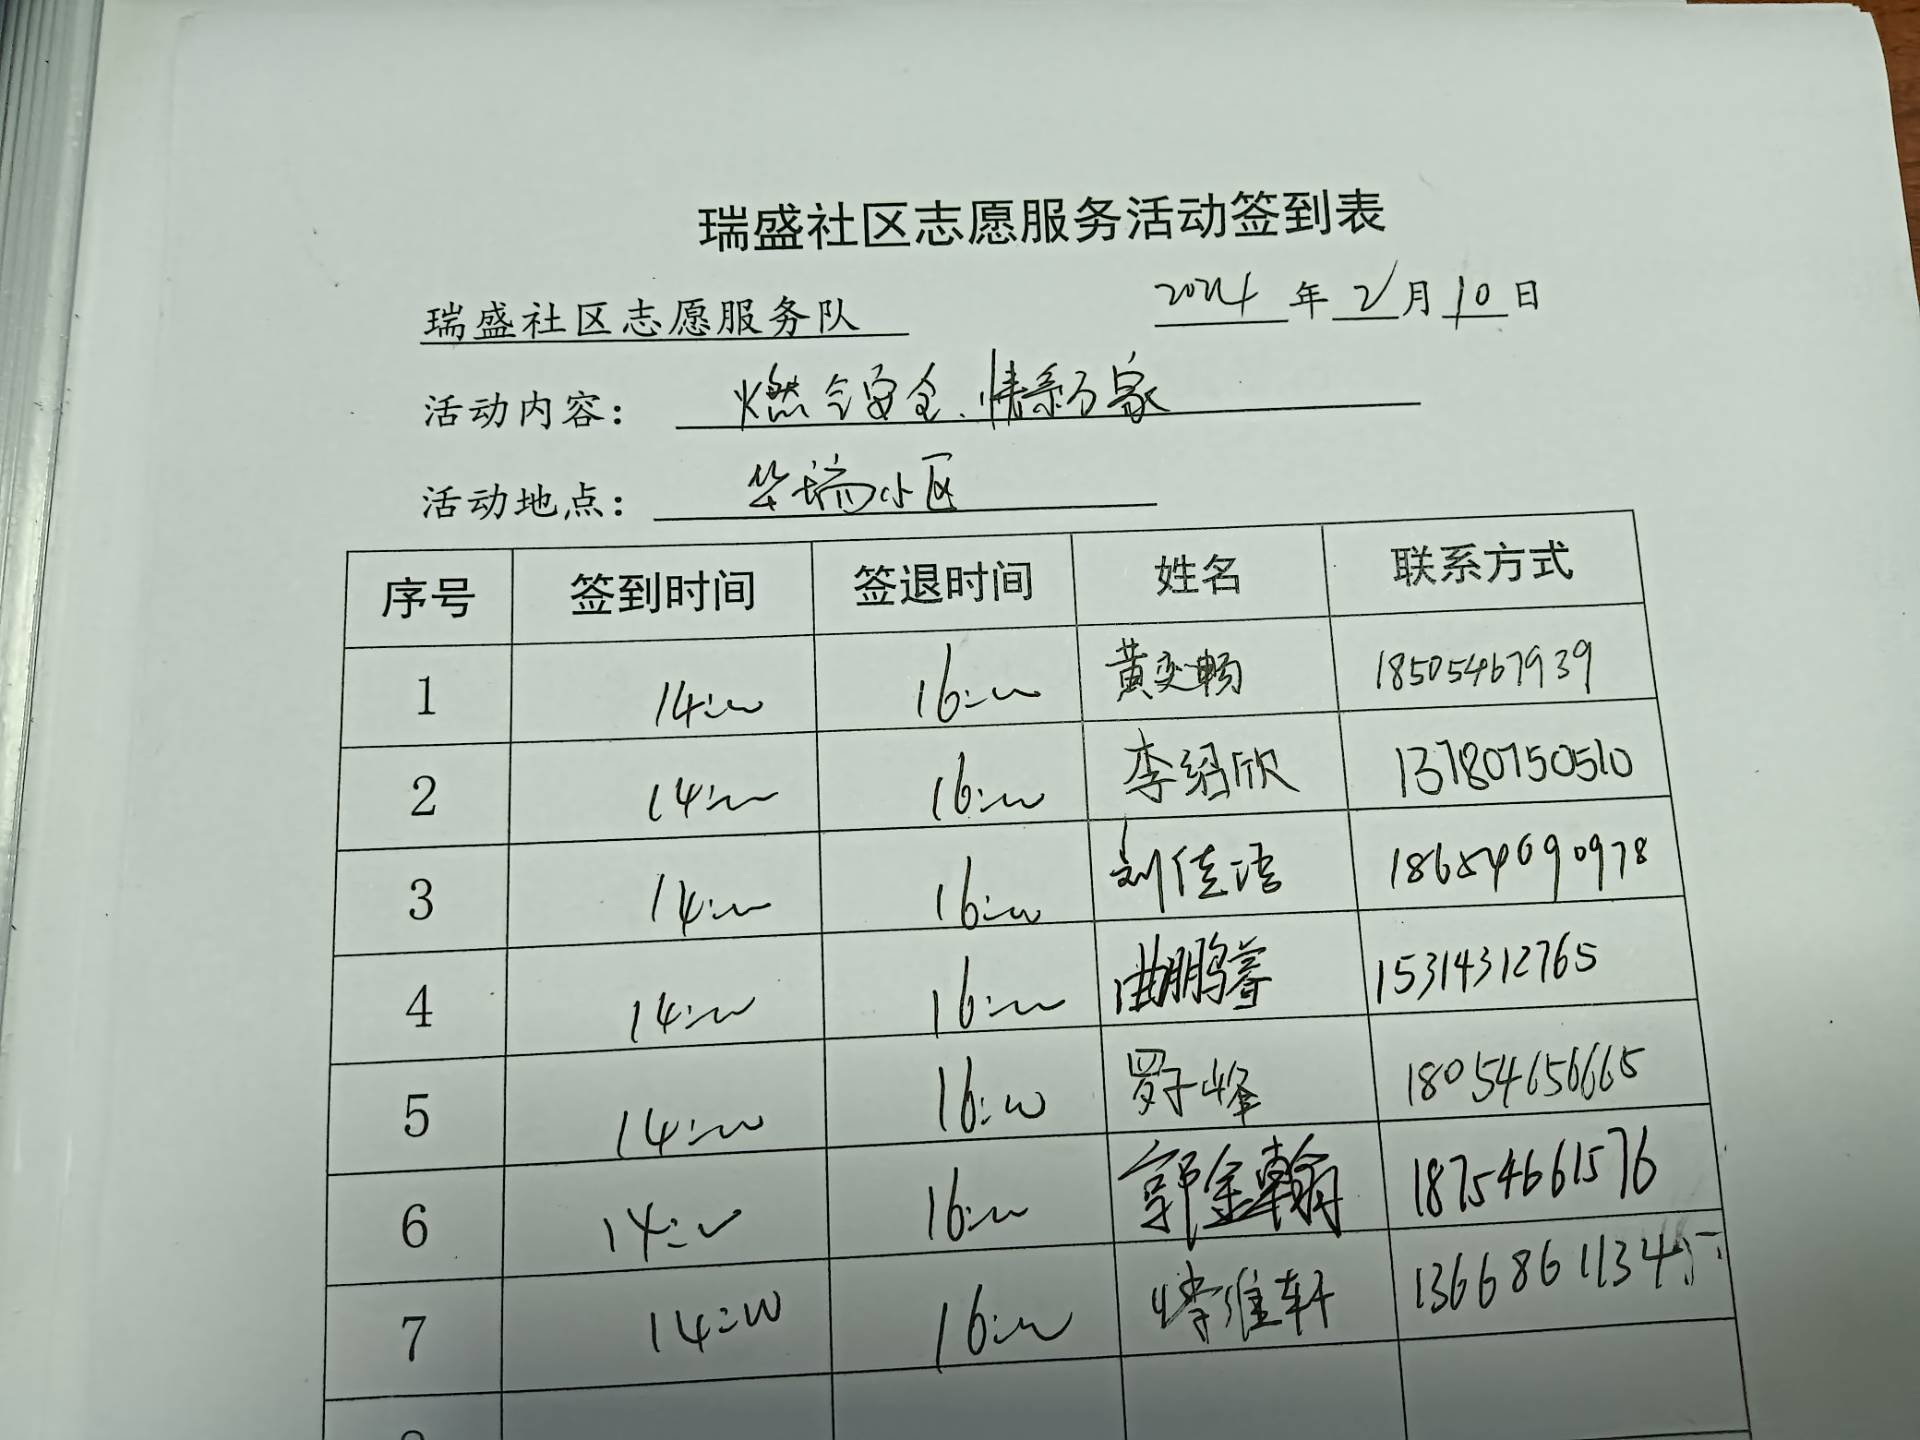 瑞盛社区志愿服务活动签到表
瑞盛社区志愿服务队 2024年2月10日
活动内容： 燃气安全、情系万家
活动地点： 华瑞小区
序号 签到时间 签退时间 姓名 联系方式
1 14:00 16:00 黄奕畅 18505467939
2 14:00 16:00 李绍欣 13780750510
3 14:00 16:00 刘佳语 18654690978
4 14:00 16:00 曲鹏睿 15314312765
5 14:00 16:00 罗子峰 18054656665
6 14:00 16:00 郭金翰 18754661576
7 14:00 16:00 维轩 1366861134